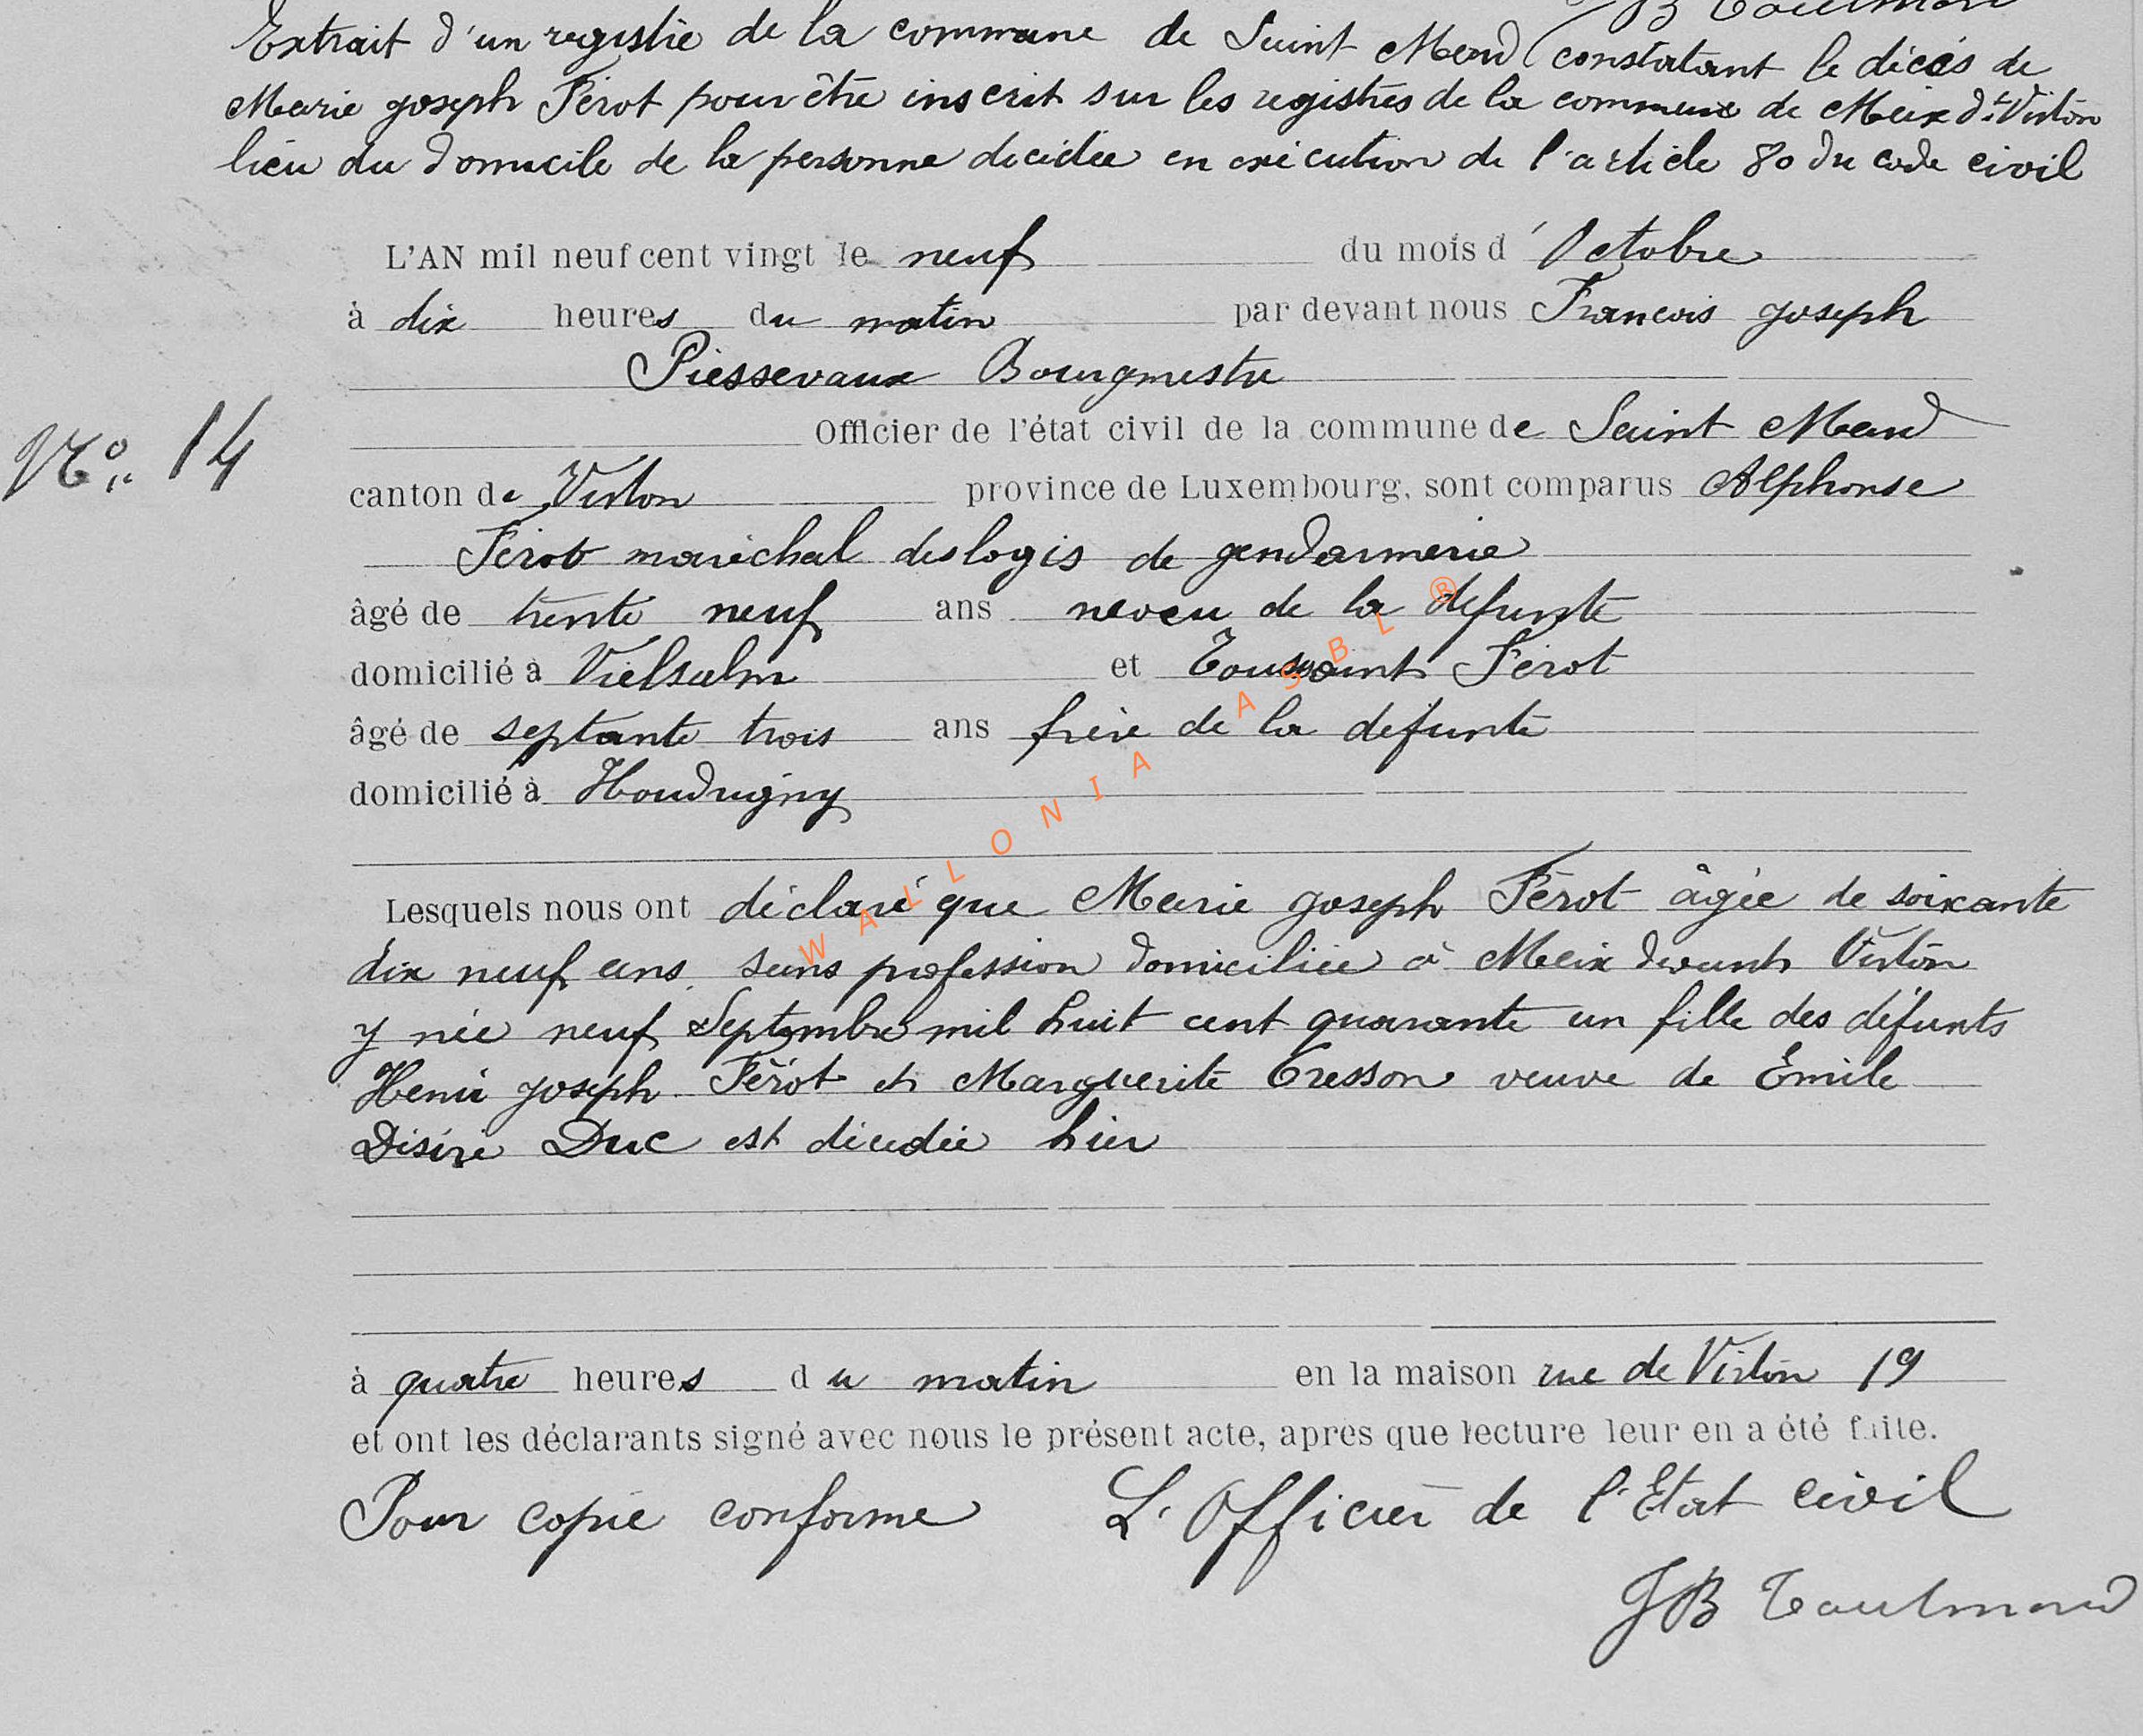 Extrait d'un registre de la commune de Saint Mard constatant le décès de
Marie joseph Férot pour être inscrit sur les registres de la commune de Meix dt Virton
lieu du domicile de la personne décédée en exécution de l'article 80 du code civil
L'AN mil neuf cent vingt le neuf du mois d'Octobre
à dix heures du matin par devant nous Francois joseph
Piessevaux Bourgmestre
Officier de l'état civil de la commune de Saint Mard
N° 14
canton de Virton province de Luxembourg, sont comparus Alphonse
Férot maréchal deslogis de gendarmerie
âgé de trente neuf ans neveu de la défunte
domicilié à Vielsalm et Toussaint Férot
âgé de septante trois ans frère de la défunte
domicilié à Houdrigny
Lesquels nous ont déclaré que Marie joseph Férot âgée de soixante
dix neuf ans, sans profession domiciliée à Meix devant Virton
y née neuf Septembre mil huit cent quarante un fille des défunts
Henri joseph Férot et Marguerite Tresson veuve de Emile
Désiré Duc est décédée hier
à quatre heures du matin en la maison rue de Virton 19
et ont les déclarants signé avec nous le présent acte, après que lecture leur en a été faite.
Pour copie conforme L'Officier de l'Etat civil
JB Toulmond
WALLONIA ASBL ®